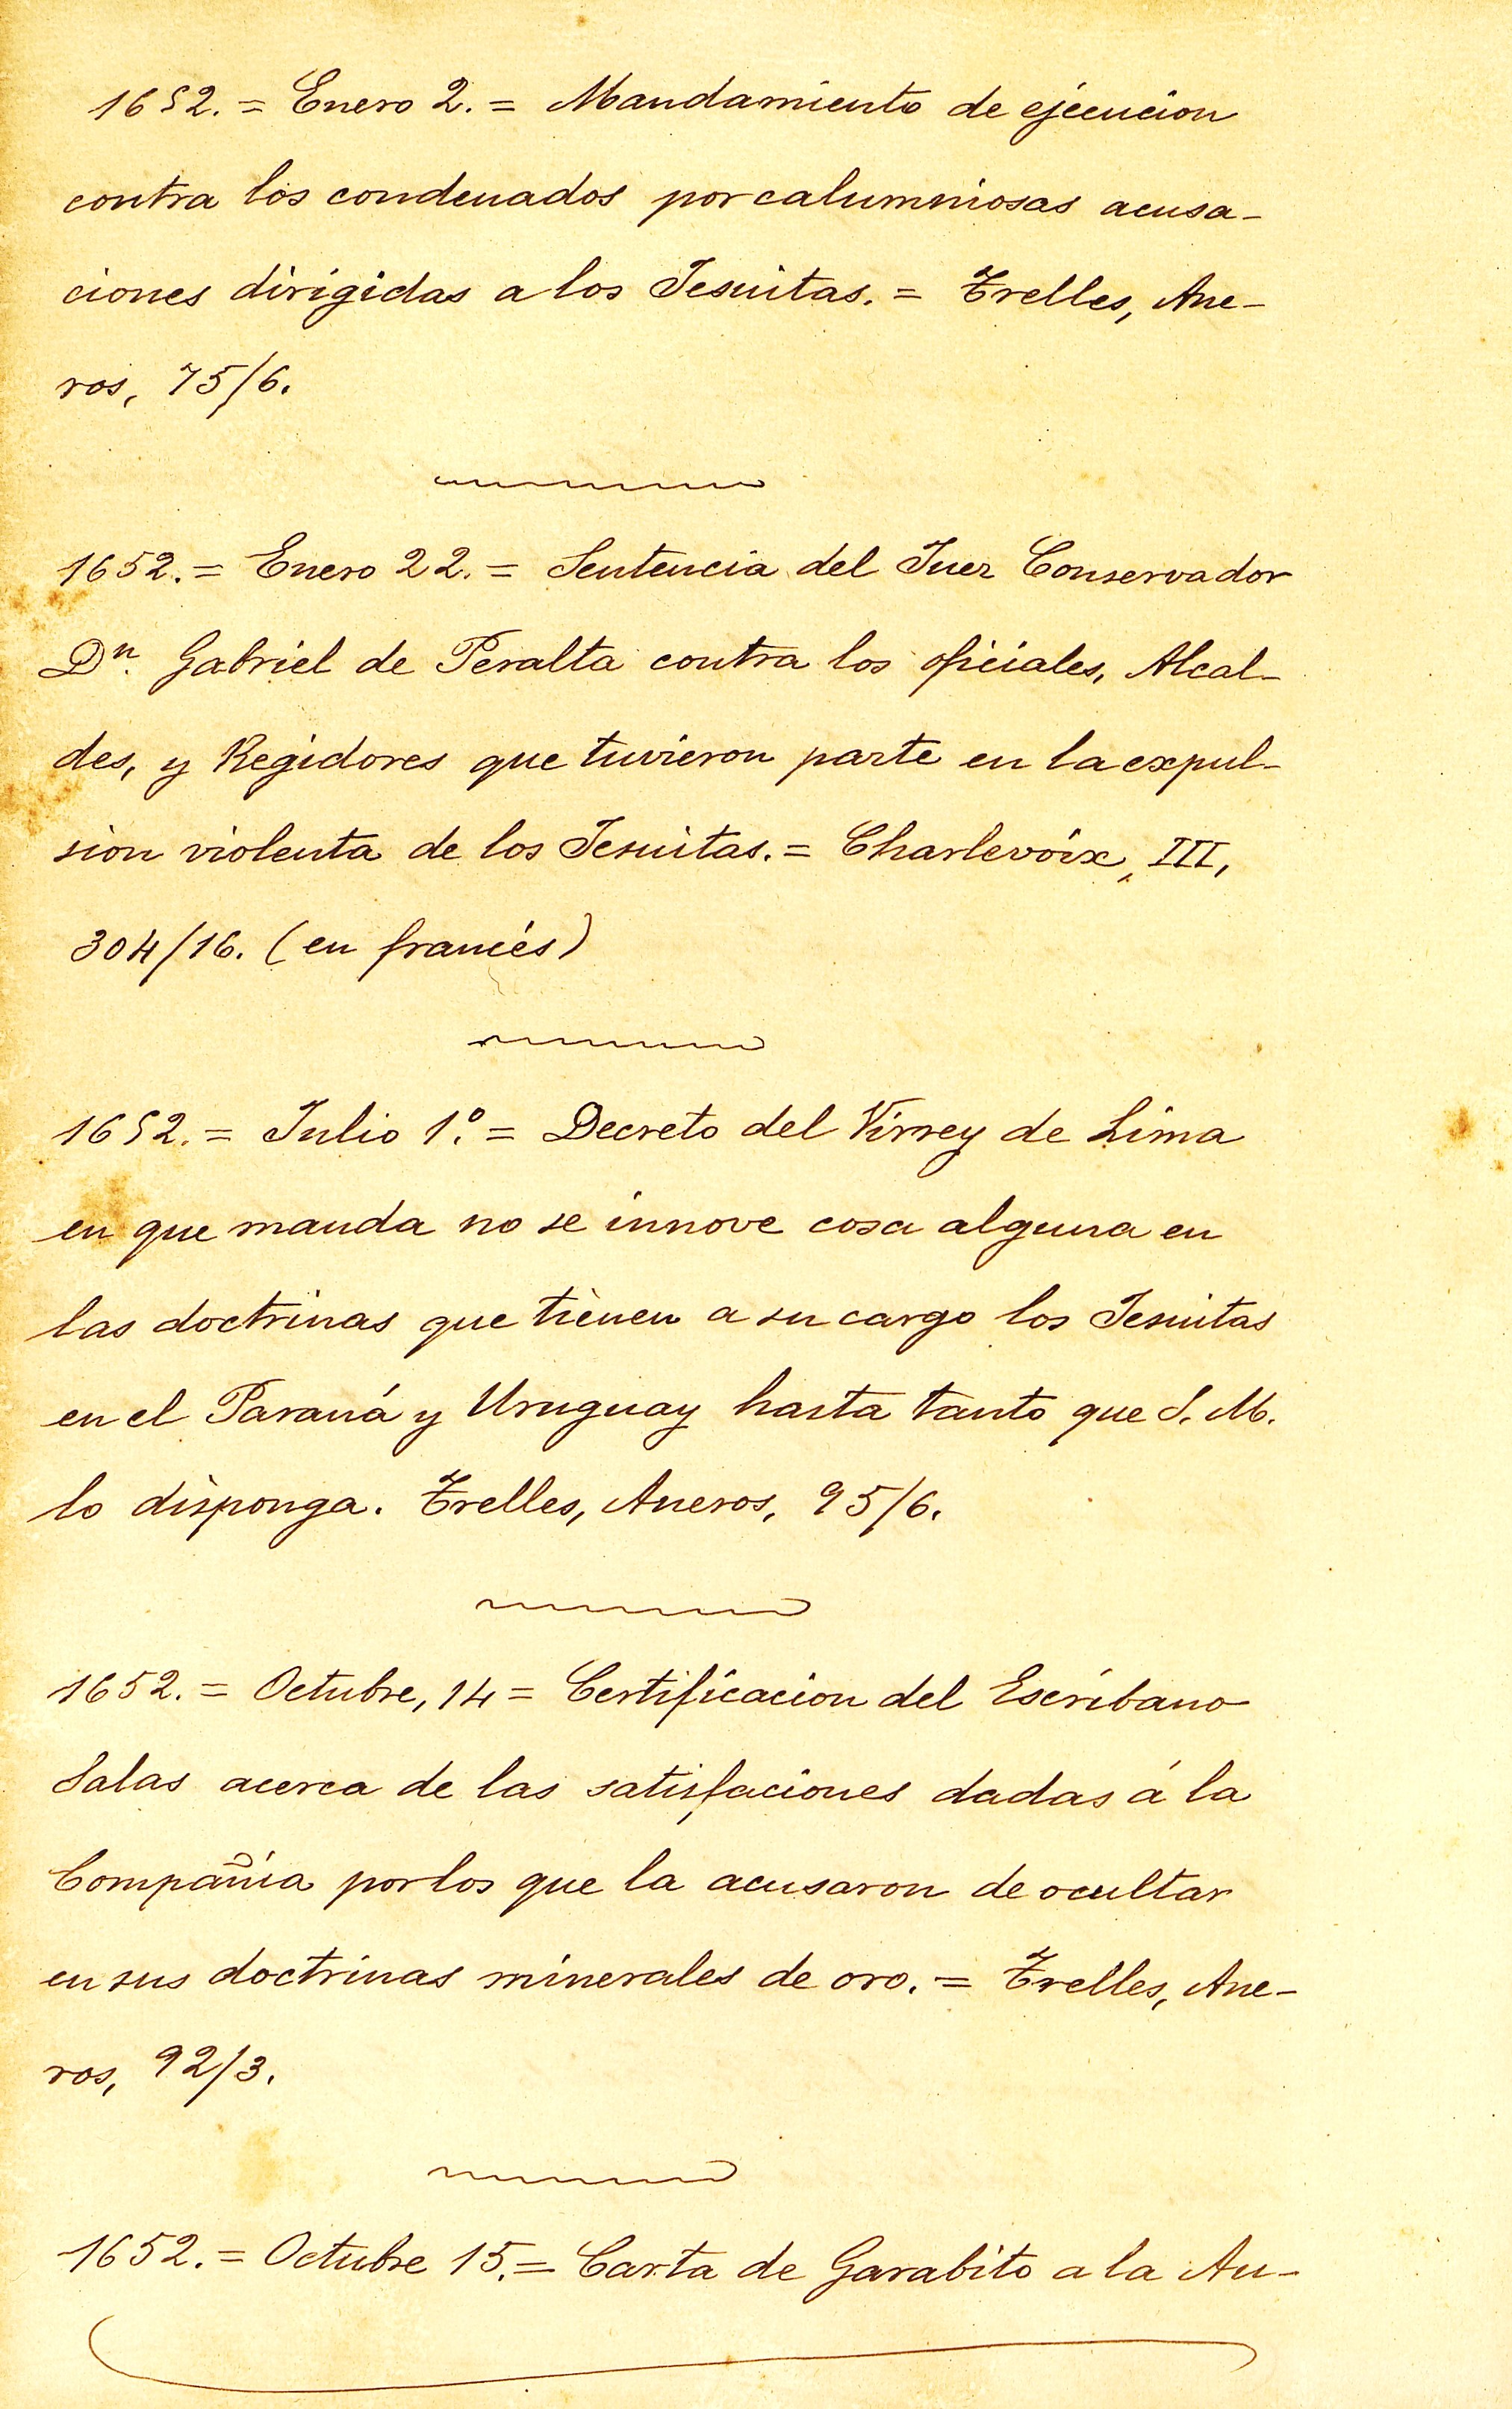 1652. = Enero 2. = Mandamiento de ejecucion
contra los condenados por calumniosas acusa-
ciones dirigidas a los Jesuitas. = Trelles, Ane-
ros, 75/6.
1652. = Enero 22. = Sentencia del Juez Conservador
Dn. Gabriel de Peralta contra los oficiales, Alcal-
des, y Regidores que tuvieron parte en la expul-
sion violenta de los Jesuitas. = Charlevoix, III,
304/16. (en francés)
1652. = Julio 1º. = Decreto del Virrey de Lima
en que manda no se innove cosa alguna en
las doctrinas que tienen a su cargo los Jesuitas
en el Paraná y Uruguay hasta tanto que S. M.
lo disponga. Trelles, Aneros, 95/6.
1652. = Octubre, 14 = Certificacion del Escribano
Salas acerca de las satisfaciones dadas á la
Compañía por los que la acusaron de ocultar
en sus doctrinas minerales de oro. = Trelles, Ane-
ros, 92/3.
1652. = Octubre 15. = Carta de Garabito a la Au-